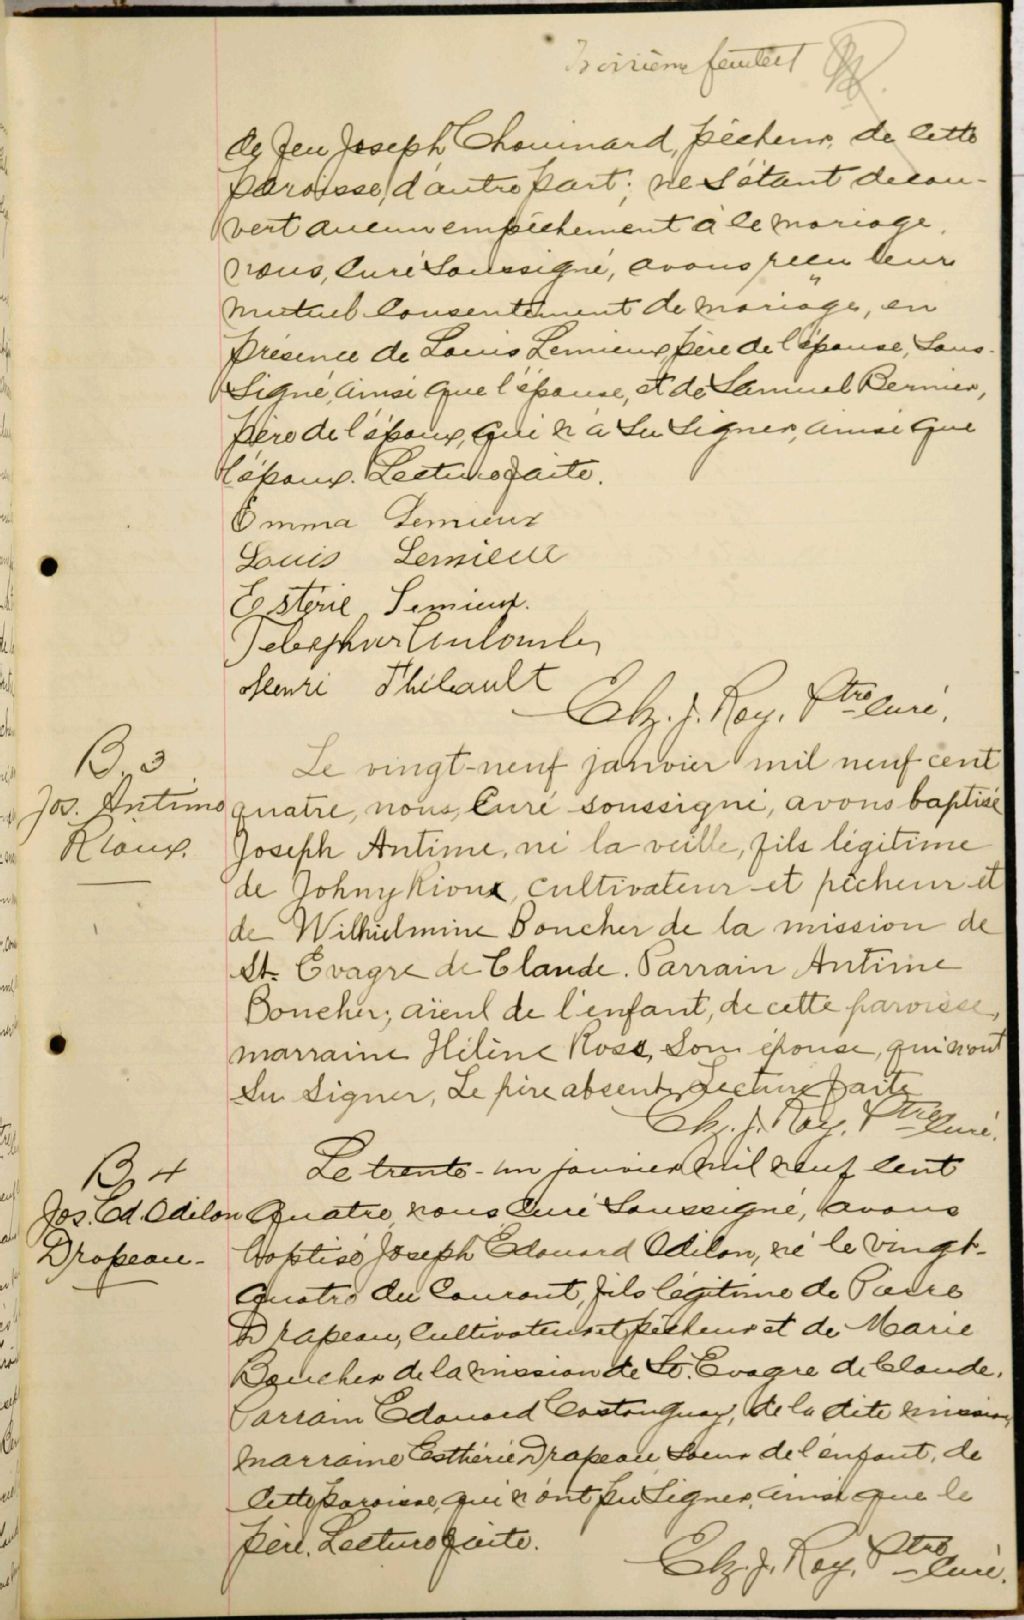 Troisième feuillet
de feu Joseph Chouinard, pêcheur, de cette
paroisse, d'autre part; ne s'étant décou-
vert aucun empêchement à ce mariage,
nous, curé soussigné, avons reçu leur
mutuel consentement de mariage, en
présence de Louis Lemieux, père de l'épouse, sous-
signé, ainsi que l'épouse, et de Samuel Bernier,
père de l'époux, qui n'a su signer, ainsi que
l'époux. Lecture faite.
Emma Lemieux
Louis Lemieux
Estérie Lemieux.
Telesphore Coulombe
Henri Thibault
Elz. J. Roy, Ptre Curé.
B. 3
Jos. Antime
Rioux.
Le vingt-neuf janvier mil neuf cent
quatre, nous, Curé soussigné, avons baptisé
Joseph Antime, né la veille, fils légitime
de Johny Rioux, cultivateur et pêcheur et
de Wilhielmine Boucher de la mission de
St. Evagre de Claude. Parrain Antime
Boucher, aïeul de l'enfant, de cette paroisse,
marraine Hélène Ross, son épouse, qui n'ont
su signer, Le père absent, Lecture faite
Elz. J. Roy, Ptre Curé.
B. 4
Jos. Ed. Odilon
Drapeau-
Le trente-un janvier mil neuf cent
quatre, nous, curé soussigné, avons
baptisé Joseph Edouard Odilon, né le vingt-
quatre du courant, fils légitime de Pierre
Drapeau, cultivateur et pêcheur et de Marie
Boucher de la mission de St. Evagre de Claude.
Parrain Edouard Castonguay, de la dite mission,
marraine Esthérie Drapeau soeur de l'enfant, de
cette paroisse, qui n'ont pu signer, ainsi que le
père. Lecture faite.
Elz. J. Roy, Ptre Curé.